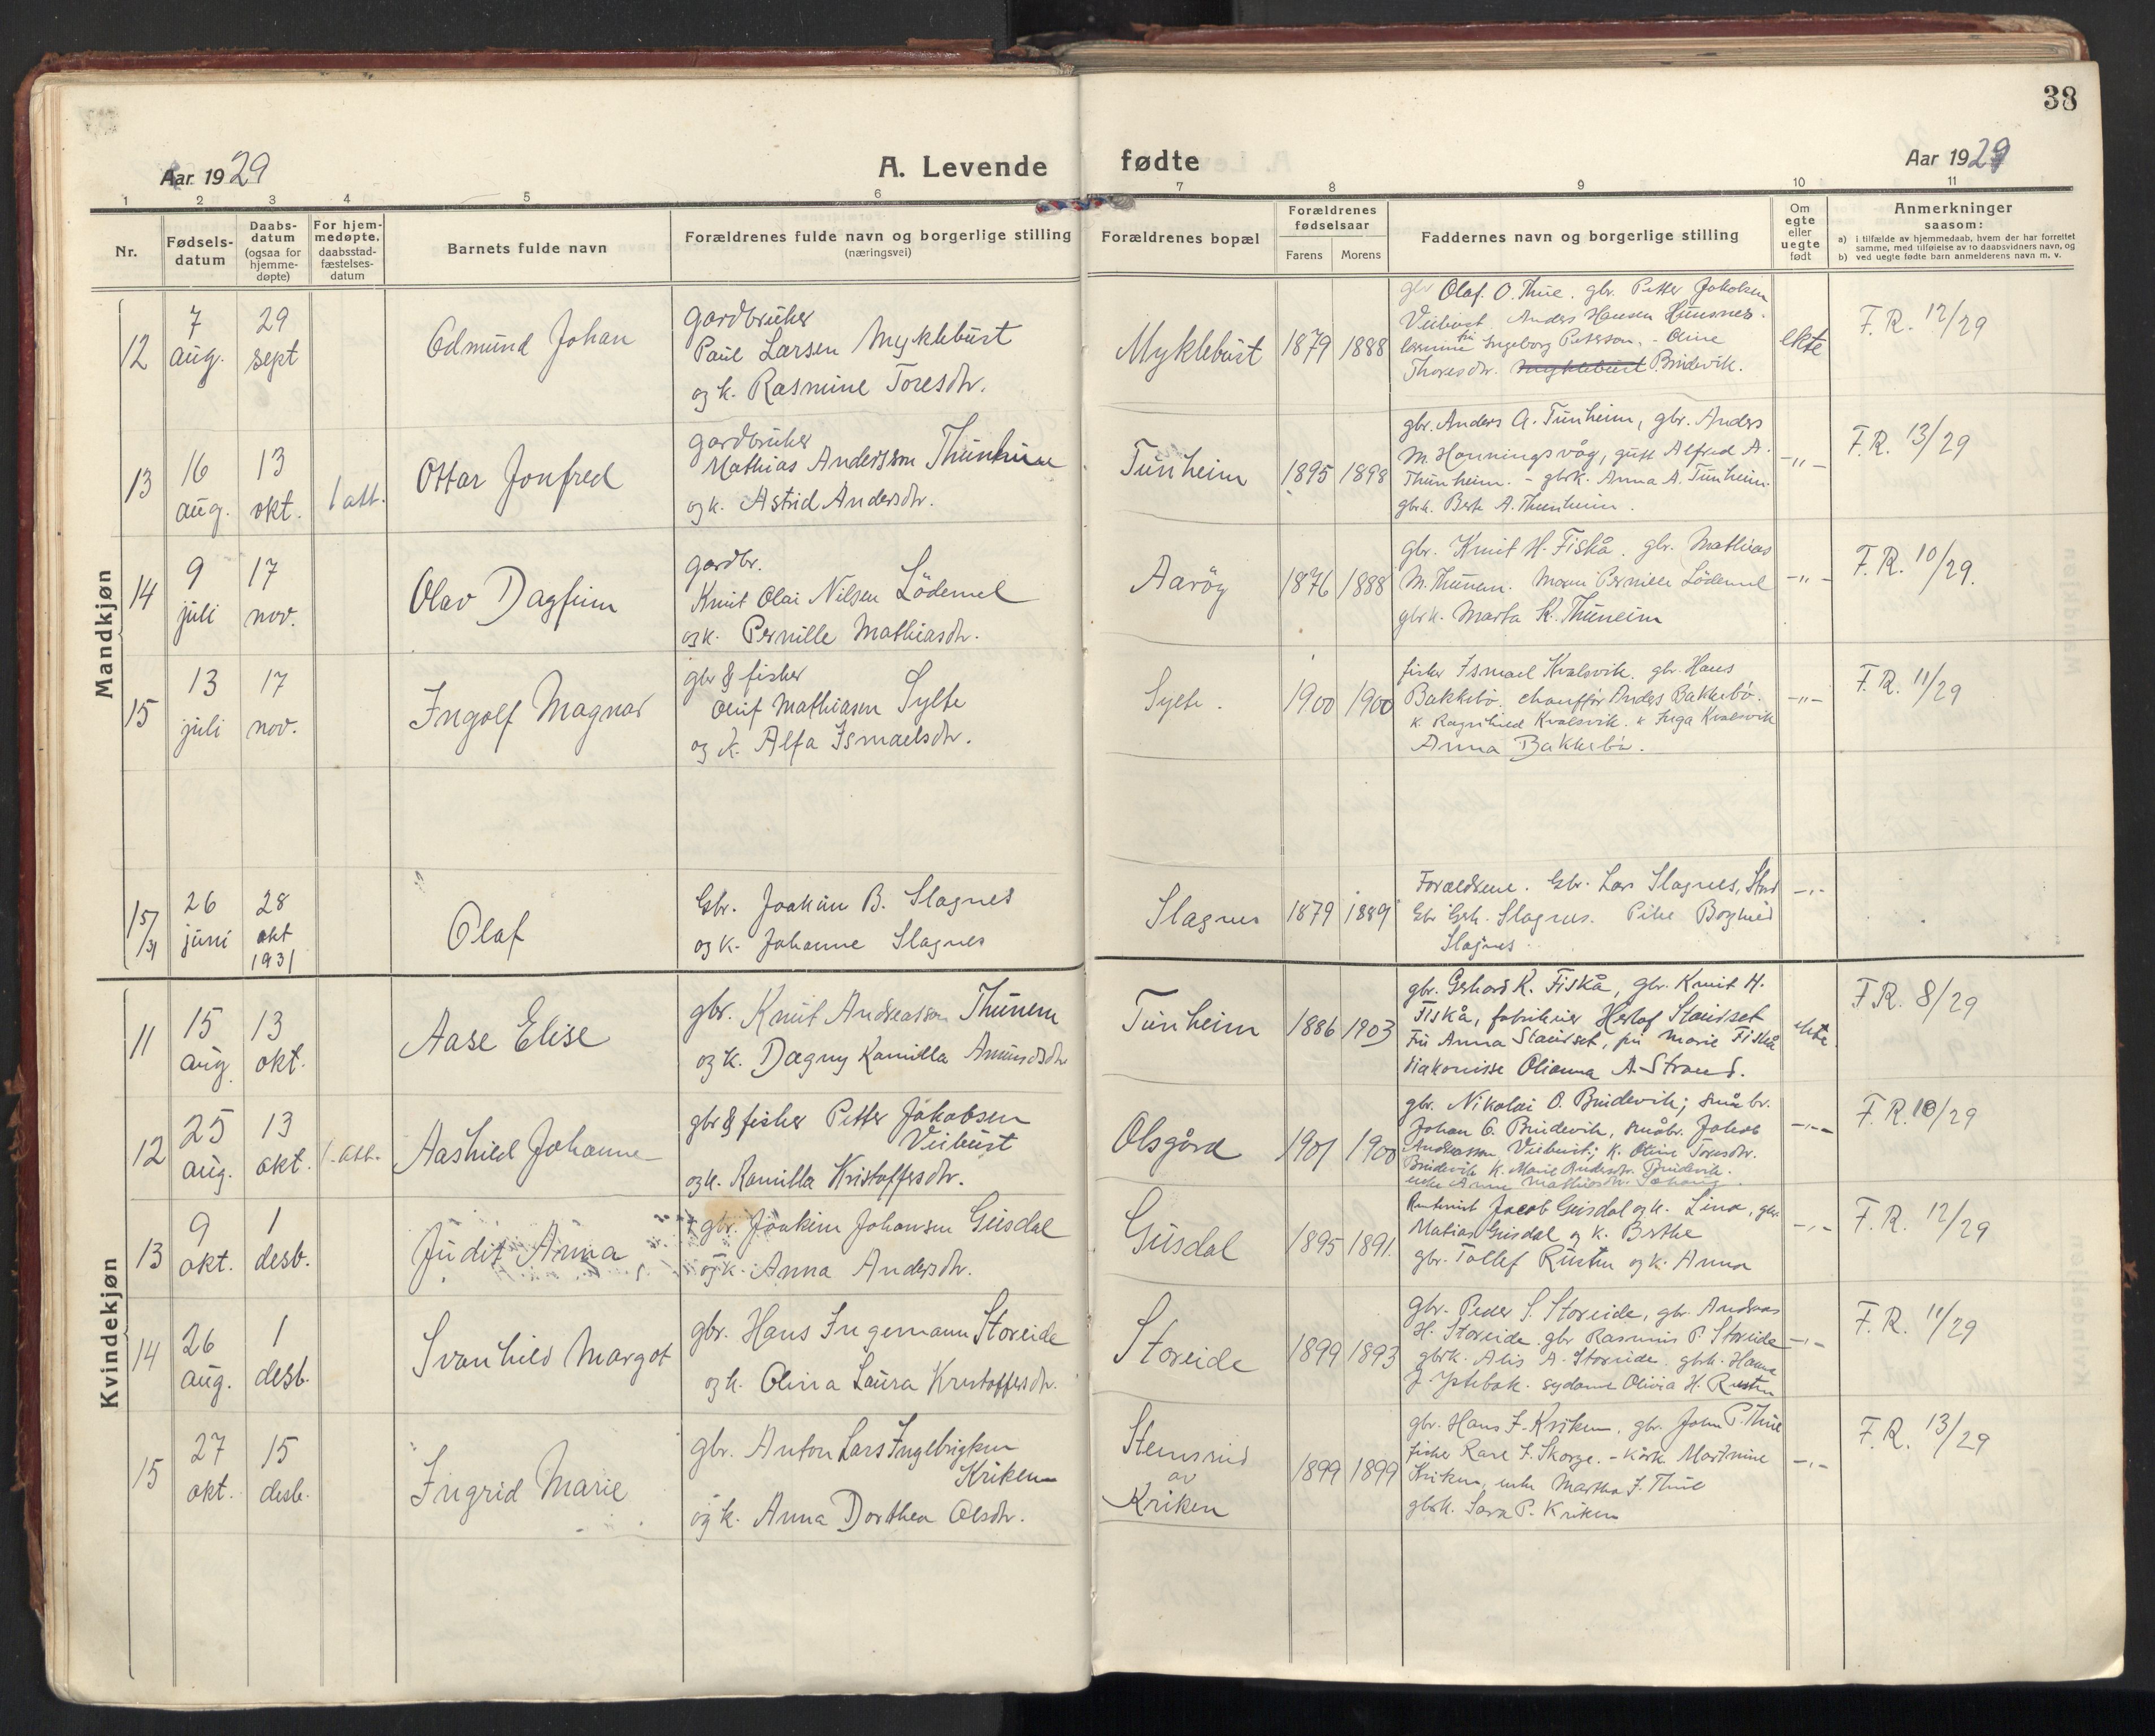 38
Aar 1929
A. Levende fødte
Aar 1929
1 2 3 4 5 6 7 8 9 10 11
Nr.
Fødsels-
datum
Daabs-
datum
(ogsaa for
hjemme-
døpte)
For hjem-
medøpte,
daabsstad-
fæstelses-
datum
Barnets fulde navn
Forældrenes fulde navn og borgerlige stilling
(næringsvei)
Forældrenes bopæl
Forældrenes
fødselsaar
Farens Morens
Faddernes navn og borgerlige stilling
Om
egte
eller
uegte
født
Anmerkninger
saasom:
a) i tilfælde av hjemmedaab, hvem der har forrettet
samme, med tilføielse av to daabsvidners navn, og
b) ved uegte fødte barn anmelderens navn m. v.
Mandkjøn
12
7
aug.
29
sept
Edmund Johan
gardbruker
Paul Larsen Myklebust
og k. Rasmine Toresdtr.
Myklebust
1879 1888
gbr Olaf. O. Thue. gbr. Petter Jakobsen
Veibust. Anders Hansen Hunsnes.
fru Ingeborg Peterson. - Oline
Thoresdtr. Myklebust P. Brudevik.
ekte
F. R. 12/29
13
16
aug.
13
okt.
1 att.
Ottar Jonfred
gardbruker
Mathias Anderssen Thunheim
og k. Astrid Andersdtr.
Tunheim
1895 1898
gbr. Anders A. Tunheim, gbr. Anders
M. Honningsvåg, gutt Alfred A.
Thunheim. - gbrk. Anna A. Tunheim.
gbrk. Berte A. Thunheim.
-"-
F. R. 13/29
14
9
juli
17
nov.
Olav Dagfinn
gardbr.
Knut Olai Nilsen Lödemel
og k. Pernille Mathiasdtr.
Aaröy
1876 1888
gbr. Knut H. Fiskå. gbr. Mathias
M. Thunem. Marie Pernille Lödemel
gbrk. Marta K. Thuneim
-"-
F. R. 10/29.
15
13
juli
17
nov.
Ingolf Magnar
gbr & fisker
Oluf Mathiasen Sylte
og k. Alfa Ismaelsdtr.
Sylte.
1900 1900
fisker Ismael Kvalsvik. gbr. Hans
Bakkebö. chauffør Anders Bakkebö.
k Ragnhild Kvalsvik. k Inga Kvalsvik
Anna Bakkebö.
-"-
F. R. 11/29
15/31
26
juni
28
okt
1931
Olaf
Gbr. Joakim B. Slagnes
og k. Johanne Slagnes
Slagnes
1879 1889
Forældrene. Gbr. Lars Slagnes, Stud
Gbr Gerh. Slagnes. Pike Borghild
Slagnes
-"-
Kvindekjøn
11
15
aug.
13
okt.
Aase Elise
gbr. Knut Andreassen Thunem
og k. Dagny Kamilla Amundsdtr
Tunheim
1886 1903
gbr. Gerhard K. Fiskå, gbr. Knut H.
Fiskå, fabrikeier Herlof Staurset
Fru Anna Staurset, fru Marie Fiskå
diakonisse Olianna A. Strand.
ekte.
F. R. 8/29
12
25
aug.
13
okt.
1. att.
Aashild Johanne
gbr & fisker Petter Jakobsen
Veibust
og k. Kamilla Kristoffersdtr.
Olsgård
1901 1900
gbr. Nikolai O. Brudevik; småbr.
Johan O. Brudevik, småbr. Jakob
Andreassen Veibust; k. Oline Toresdtr.
Brudevik k. Marie Andersdtr. Brudevik.
enke Anne Mathiasdtr.
-"-
F. R. 10/29
13
9
okt.
1
desb.
Judit Anna
gbr. Joakim Johansen Gusdal
og k. Anna Andersdtr.
Gusdal
1895 1891.
Jacob Gusdal og k. Lina, gbr.
Matias Gusdal og k. Berthe
gbr. Tollef Rusten og k. Anna
-"-
F. R. 12/29
14
26
aug.
1
desb.
Svanhild Margot
gbr. Hans Ingemann Storeide
og k. Olina Laura Kristoffersdtr.
Storeide
1899 1893
gbr. Peder S. Storeide, gbr. Andreas
H. Storeide. gbr Rasmus P. Storeide
gbrk. Alis A. Storeide. gbrk. Hanna
J. Ystebøk. sydame Olivia H. Rusten
-"-
F. R. 11/29
15
27
okt.
15
desb.
Ingrid Marie
gbr. Anton Lars Ingebrigtsen
Kriken
og k. Anna Dorthea Olsdtr.
Stensrud
av
Kriken
1899 1899
gbr. Hans I. Kriken, gbr. John P. Thue
fisker Kare I. Skorge. - kårk. Martinine
Kriken, enke Martha J. Thue
gbrk. Sara P. Kriken
-"-
F. R. 13/29